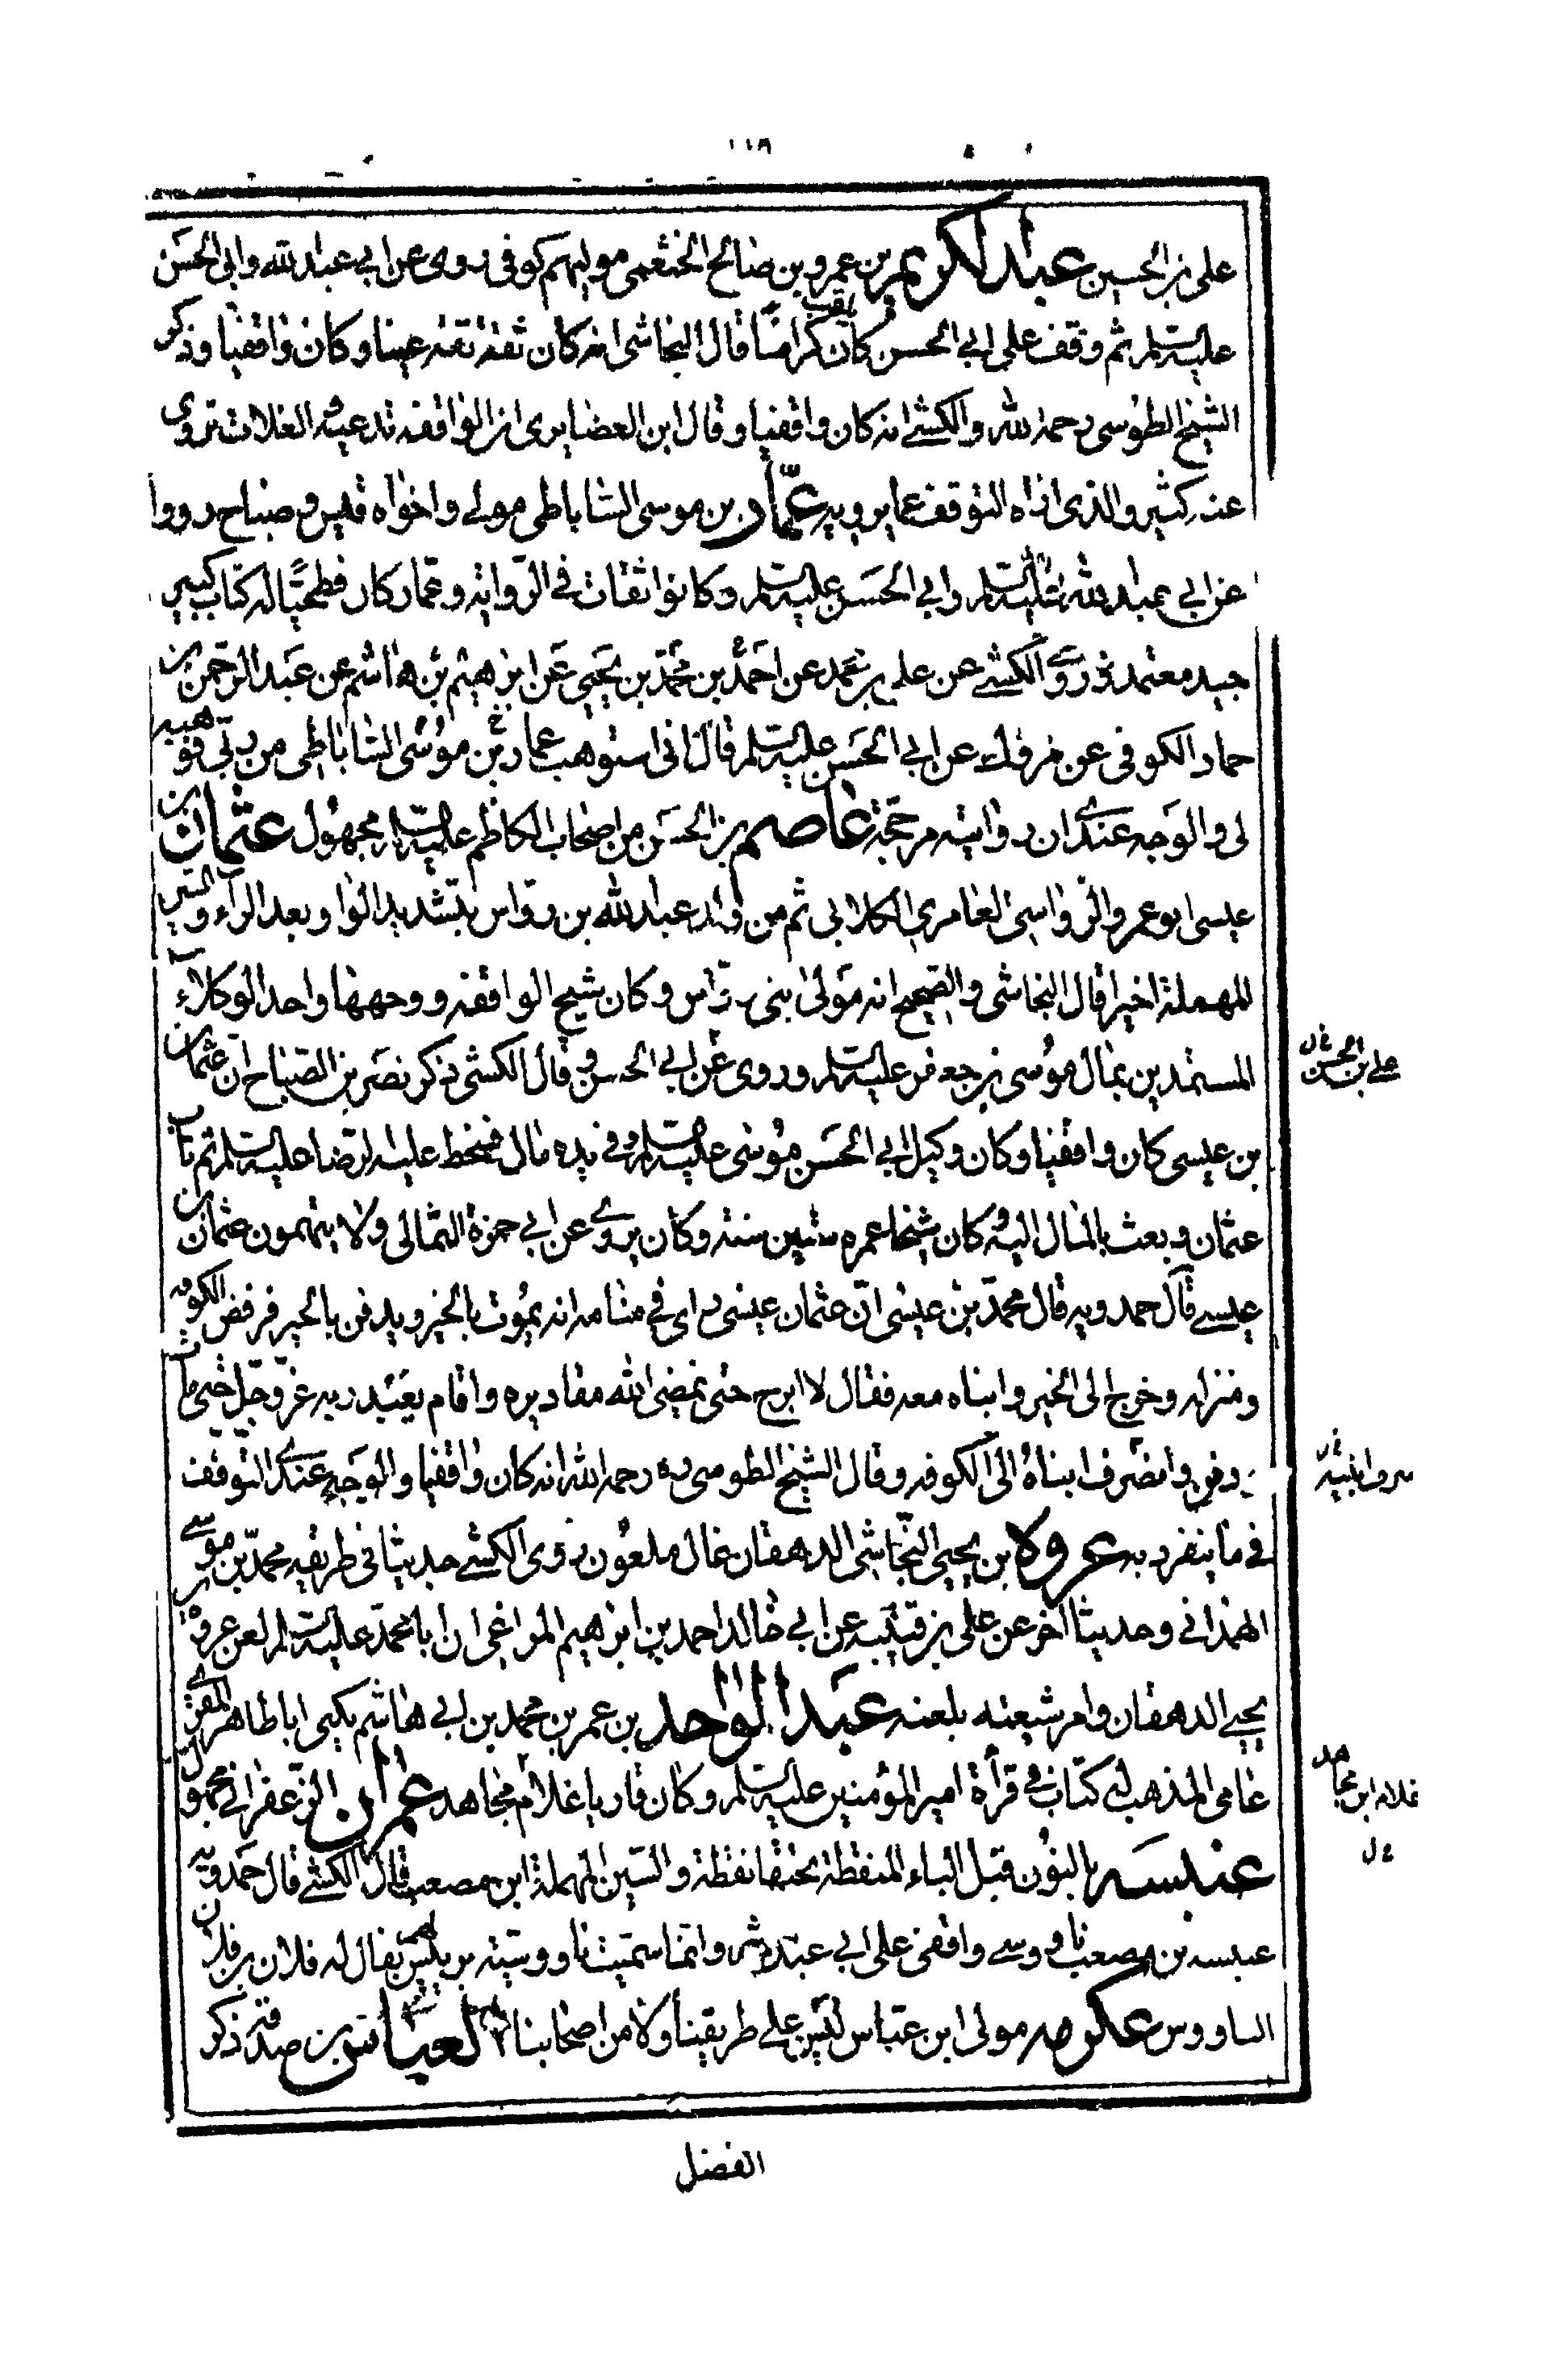 ١١٨
على بن الحسين عبد الكريم بن عمرو بن صالح الخثعمى موليهم كوفى روى عن ابي عبد الله وابى الحسن
عليه السلم ثم وقف على ابي الحسن كان يلقب كراما قال النجاشى انه كان ثقة ثقة عينا وكان واقفيا وذكر
الشيخ الطوسى رحمه الله والكشے انه كان واقفيا وقال ابن الغضايرى ان الواقفه تدعيه والغلات تروى
عنه كثير والذى اراه التوقف عما يرويه عمّار بن موسى الساباطى مولے واخواه قيس و صباح رووا
عن ابي عبد الله عليه السلم وابي الحسن عليه السلم وكانوا ثقات في الرواية وعمار كان فطحيّا له كتاب كبير
جيد معتمد وروى الكشے عن على بن محمد عن احمد بن محمد بن يحيى عن ابرهيم بن هاشم عن عبد الرحمن بن
حماد الكوفى عن مروك عن ابي الحسن عليه السلم قال انى استوهبت عمار بن موسى الساباطى من ربى فوهبه
لى والوجه عندى ان روايته مرجحة عاصم بن الحسن من اصحاب الكاظم عليه السلم مجهول عثمان بن
عيسى ابو عمرو الرواسى العامرى الكلابى ثم من ولد عبد الله بن رواس بتشديد الواو بعد الراء والسين
المهملة اخيرا قال النجاشى والصحيح انه مولى بنى روّاس وكان شيخ الواقفه ووجهها واحد الوكلاء
المستبدين بمال موسى بن جعفر عليه السلم وروى عن ابي الحسن وقال الكشى ذكر نصر بن الصباح ان عثمان
بن عيسى كان واقفيا وكان وكيل ابي الحسن موسى عليه السلم وفى يده مال فسخط عليه الرضا عليه السلم ثم تاب
عثمان وبعث بالمال اليه وكان شيخا عمره ستين سنة وكان يروى عن ابي حمزة الثمالى ولا يتهمون عثمان بن
عيسے قال حمدويه قال محمد بن عيسى انّ عثمان عيسى راى في منامه انه يموت بالحير ويدفن بالحير فرفض الكوفه
ومنزله وخرج الى الحير وابناه معه فقال لا ابرح حتى يمضى الله مقاديره واقام يعبد ربه عزّ وجلّ حتى مات
ودفن وانصرف ابناه الى الكوفه وقال الشيخ الطوسى ره رحمه الله انه كان واقفيا والوجه عندى التوقف
في ما ينفرد به عروة بن يحيى النخاشى الدهقان غال ملعون روى الكشے حديثا فى طريقه محمد بن موسے
الهمدانے وحديثا اخر عن على بن قتيبه عن ابي خالد احمد بن ابرهيم المراغى ان ابا محمد عليه السلم لعن عروة بن
يحيے الدهقان وامر شيعته بلعنه عبد الواحد بن عمر بن محمد بن ابے هاشم يكنى ابا طاهر المقرى
عامى المذهب له كتاب فى قرأة امير المؤمنين عليه السلم وكان قاريا غلام مجاهد عمران الزعفرانے مجهول
عنبسه بالنون قبل الباء المنقطة تحتها نقطة والسين المهملة ابن مصعب قال الكشے قال حمدويه
عبسه بن مصعب ناووسے واقفى على ابي عبد الله وانما سميت ناووسيته برئيس لهم يقال له فلان بن فلان
الناووس عكرمه مولى ابن عباس ليس على طريقينا ولا من اصحابنا العباس بن صدقه ذكر
على بن الحسن
غلام ابن مجاهد
ل
الفضل